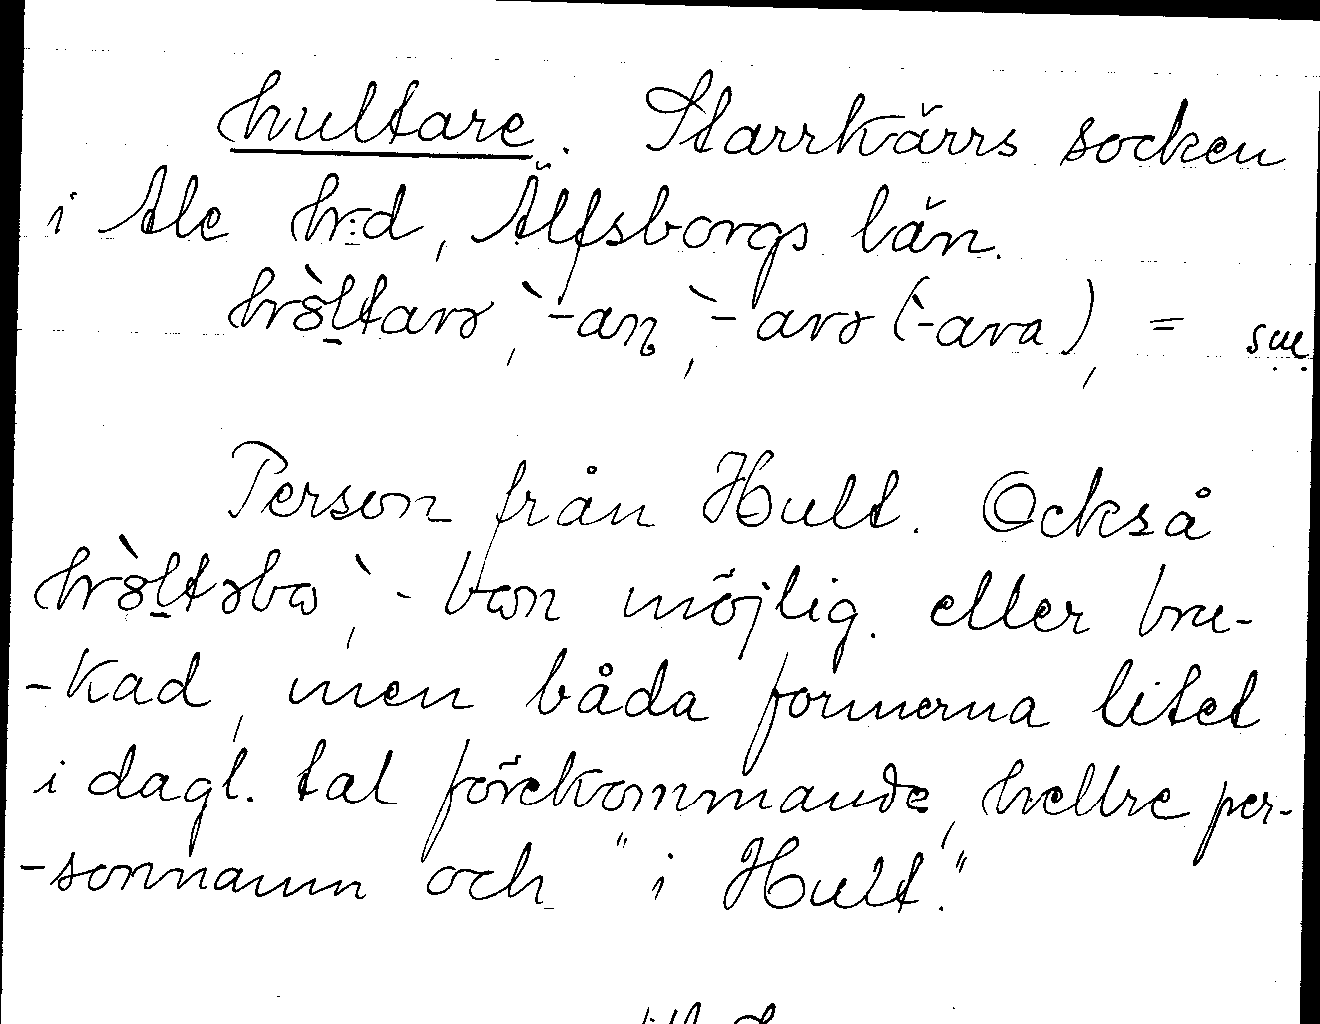 hultare. Starrkärrs socken
i Ale h:d, Älfsborgs län.
hòltarə, `-an, `-arə (`-ara), = sm.
Person från Hult. Också
hòltəbo, `-bon möjlig. eller bru-
-kad, men båda formerna litet
i dagl. tal förekommande, hellre per-
-sonnamn och "i Hult."